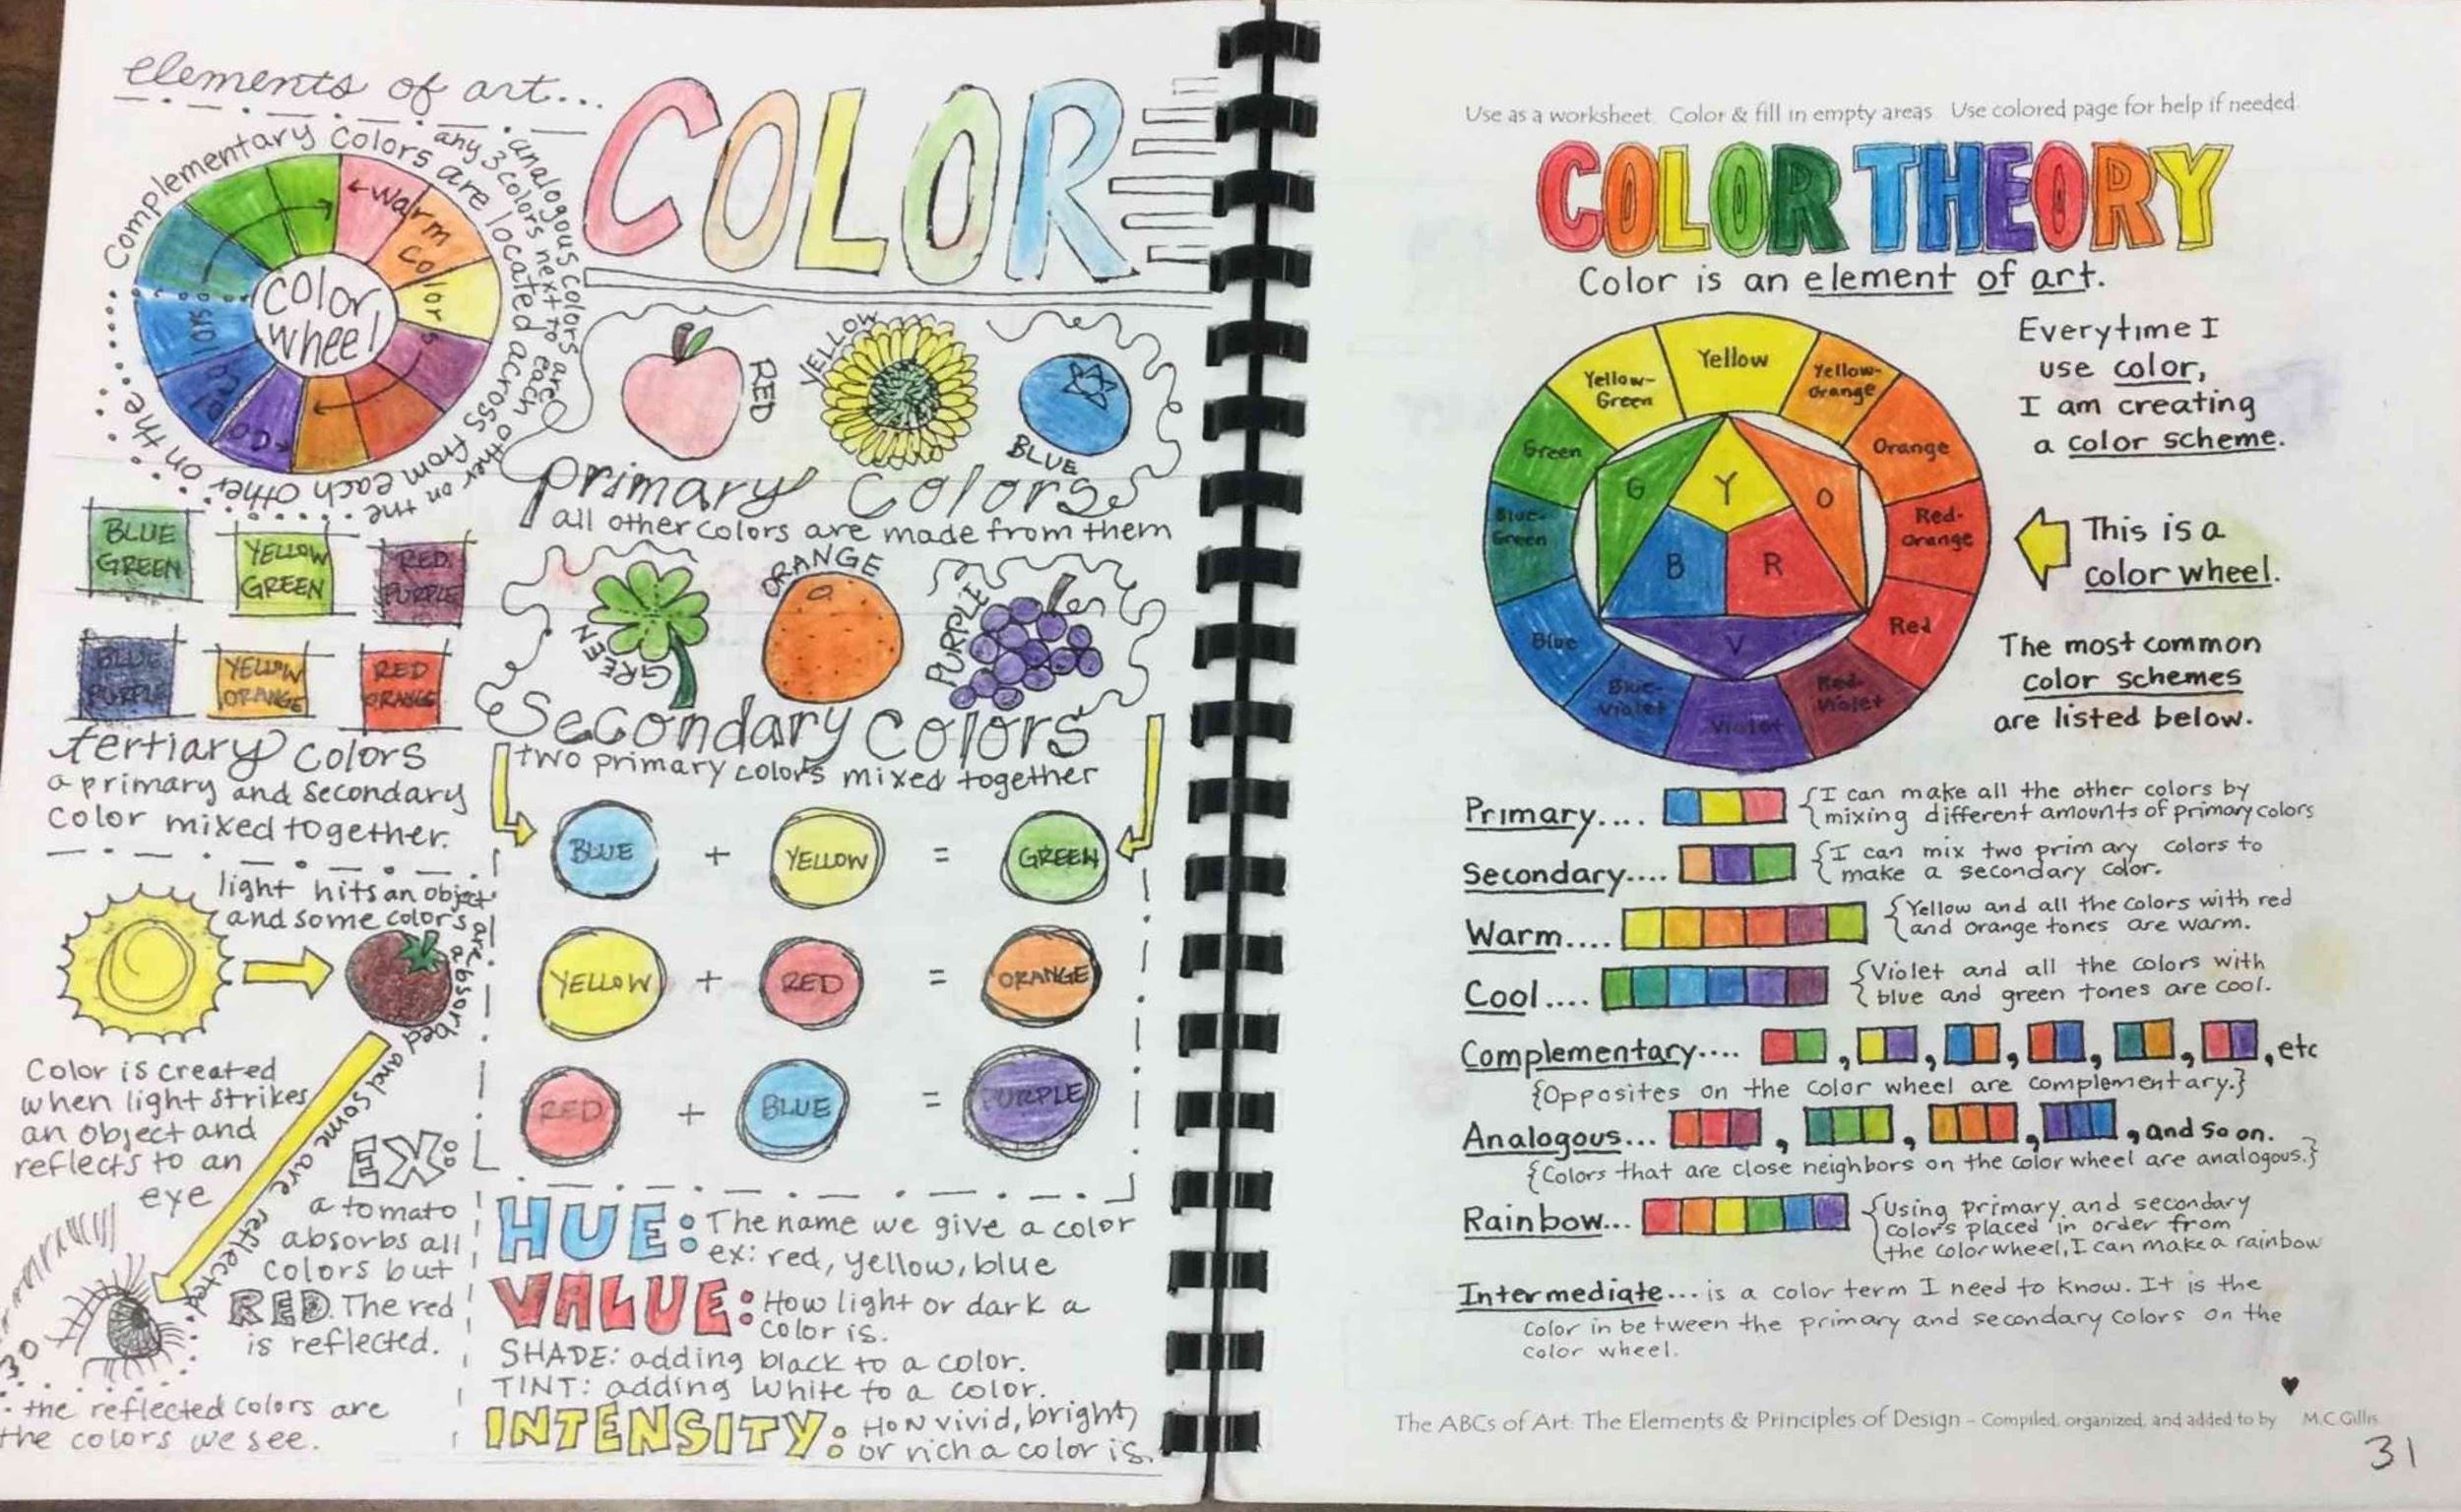 elements of art...
COLOR
Complementary Colors are located across from each other on the
analogous colors are
any 3 colors next to each other on the
color
wheel
←warm colors
←cool colors
RED
YELLOW
BLUE
primary colors
all other colors are made from them
BLUE
GREEN
YELLOW
GREEN
RED
PURPLE
BLUE
PURPLE
YELLOW
ORANGE
RED
ORANGE
tertiary colors
a primary and secondary
color mixed together.
GREEN
GREEN
ORANGE
PURPLE
Secondary colors
two primary colors mixed together
BLUE + YELLOW = GREEN
YELLOW + RED = ORANGE
RED + BLUE = PURPLE
light hits an object
and some colors are absorbed and some are reflected
Color is created
when light strikes
an object and
reflects to an
eye
EX:
a tomato
absorbs all
colors but
RED. The red
is reflected.
30
the reflected colors are
the colors we see.
HUE: The name we give a color
ex: red, yellow, blue
VALUE: How light or dark a
color is.
SHADE: adding black to a color.
TINT: adding white to a color.
INTENSITY: How vivid, bright,
or rich a color is.
Use as a worksheet. Color & fill in empty areas. Use colored page for help if needed.
COLOR THEORY
Color is an element of art.
Yellow
Yellow-
Orange
Orange
Red-
Orange
Red
Red-
Violet
Violet
Blue-
Violet
Blue
Blue-
Green
Green
Yellow-
Green
G
Y
O
B
R
V
Everytime I
use color,
I am creating
a color scheme.
This is a
color wheel.
The most common
color schemes
are listed below.
Primary.... {I can make all the other colors by
mixing different amounts of primary colors
Secondary.... {I can mix two primary colors to
make a secondary color.
Warm.... {Yellow and all the colors with red
and orange tones are warm.
Cool.... {Violet and all the colors with
blue and green tones are cool.
Complementary.... , , , , , , etc
{Opposites on the color wheel are complementary.}
Analogous... , , , , and so on.
{Colors that are close neighbors on the color wheel are analogous.}
Rainbow... {Using primary and secondary
colors placed in order from
the color wheel, I can make a rainbow
Intermediate... is a color term I need to know. It is the
color in between the primary and secondary colors on the
color wheel.
The ABCs of Art: The Elements & Principles of Design - Compiled, organized, and added to by M.C.Gillis
31